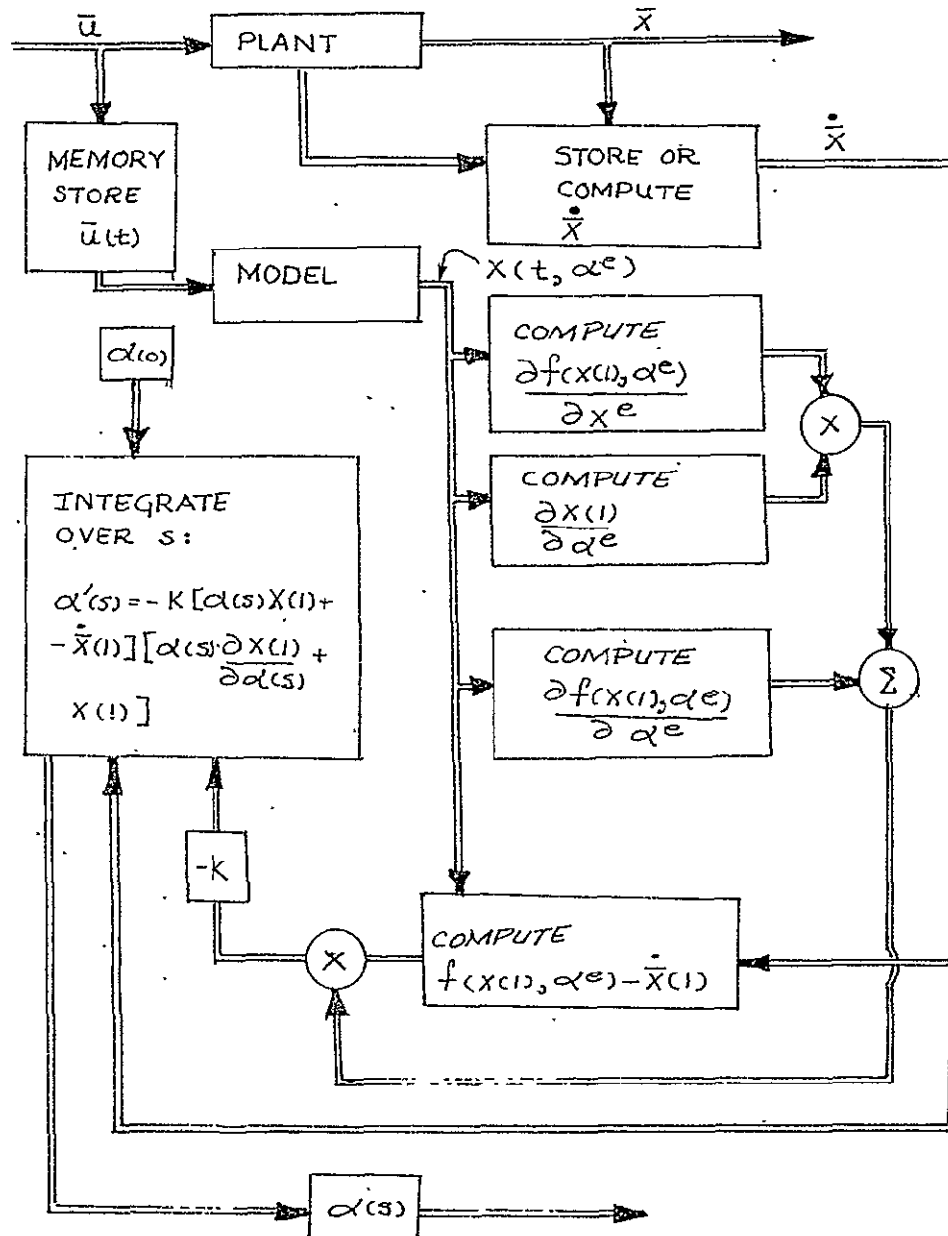 ū
PLANT
x̄
MEMORY
STORE
ū(t)
STORE OR
COMPUTE
ẋ̄
ẋ̄
MODEL
x(t, αᵉ)
α(0)
COMPUTE
∂f(x(1), αᵉ)
∂xᵉ
X
COMPUTE
∂x(1)
∂αᵉ
INTEGRATE
OVER S:
α'(s) = -K[α(s)X(1)+
-ẋ̄(1)][α(s)·∂X(1)
∂α(s)
+
X(!)]
COMPUTE
∂f(x(1), αᵉ)
∂αᵉ
Σ
-K
X
COMPUTE
f(x(1), αᵉ) - ẋ̄(1)
α(s)